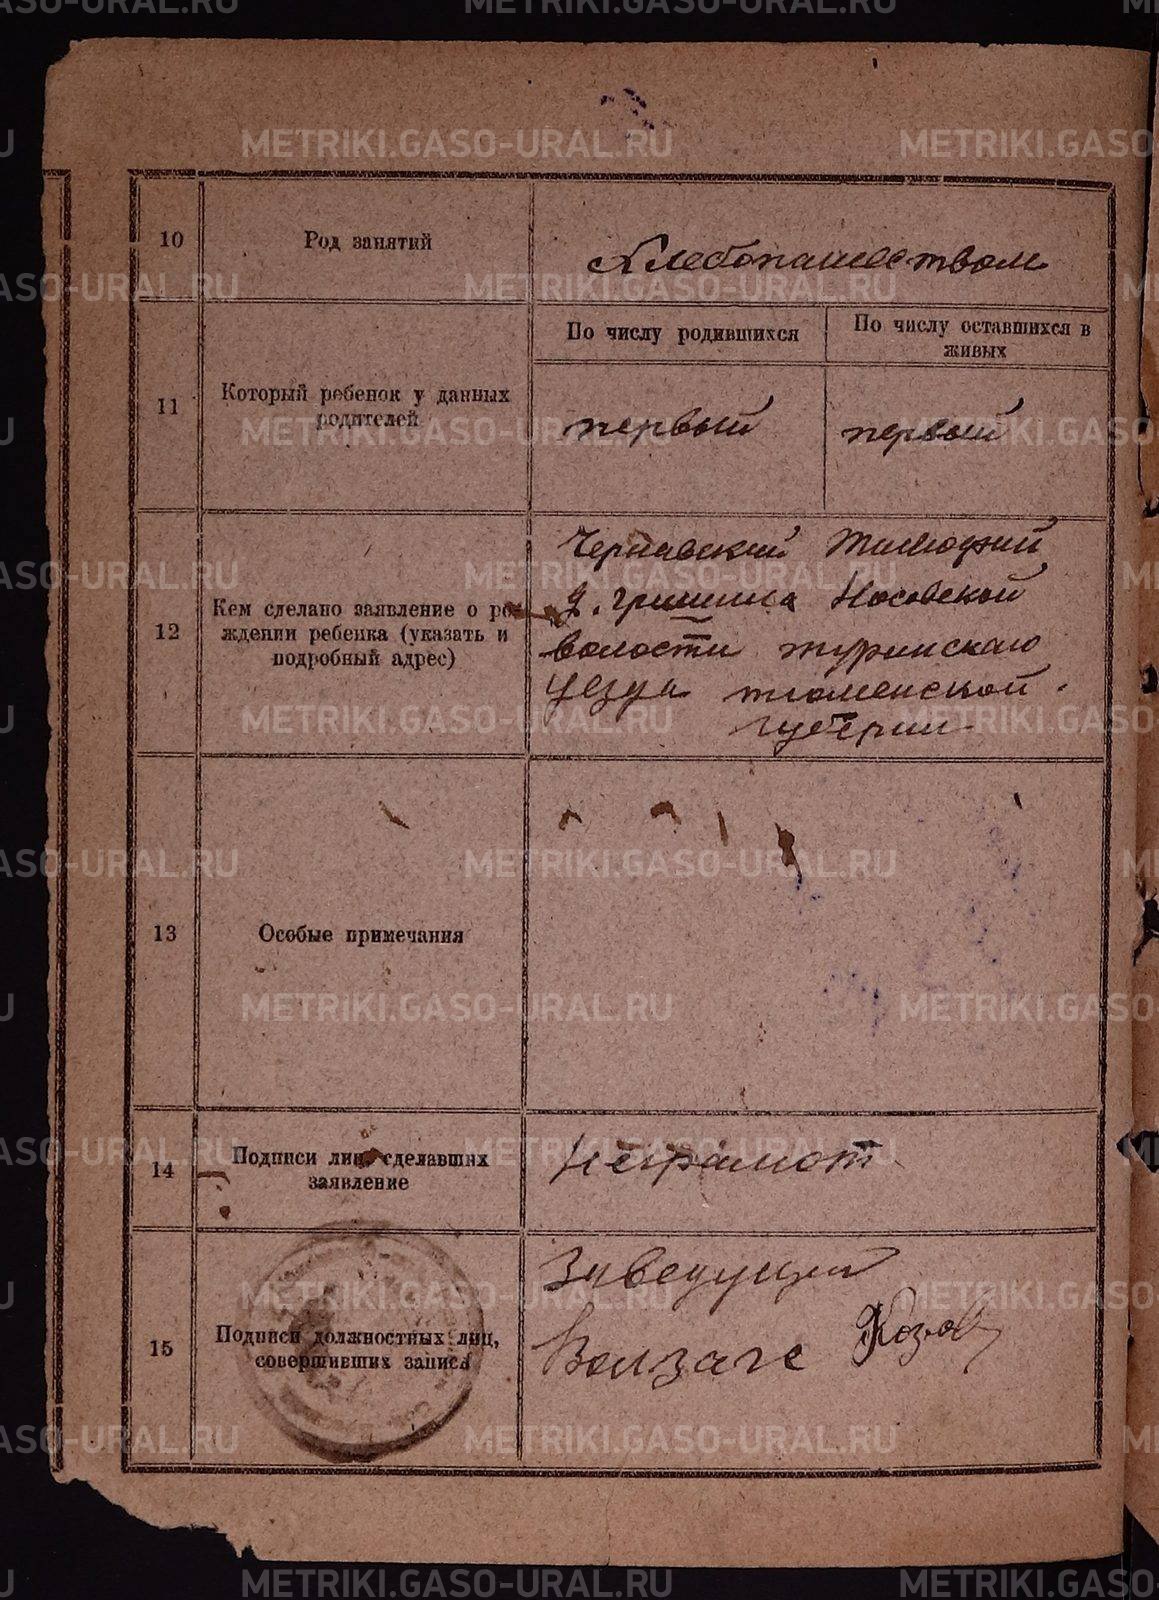 10
Род занятий
Хлебопашеством
11
Который ребенок у данных
родителей
По числу родившихся
По числу оставшихся в
живых
первый
первый
12
Кем сделано заявление о ро-
ждении ребенка (указать и
подробный адрес)
Чернавский Тимофий
д. Гришина Носовской
волости туринскаго
уезда тюменской
губерни
13
Особые примечания
14
Подписи лиц, сделавших
заявление
Неграмот
15
Подписи должностных лиц,
совершивших запись
Заведущий
Волзагс
METRIKI.GASO-URAL.RU